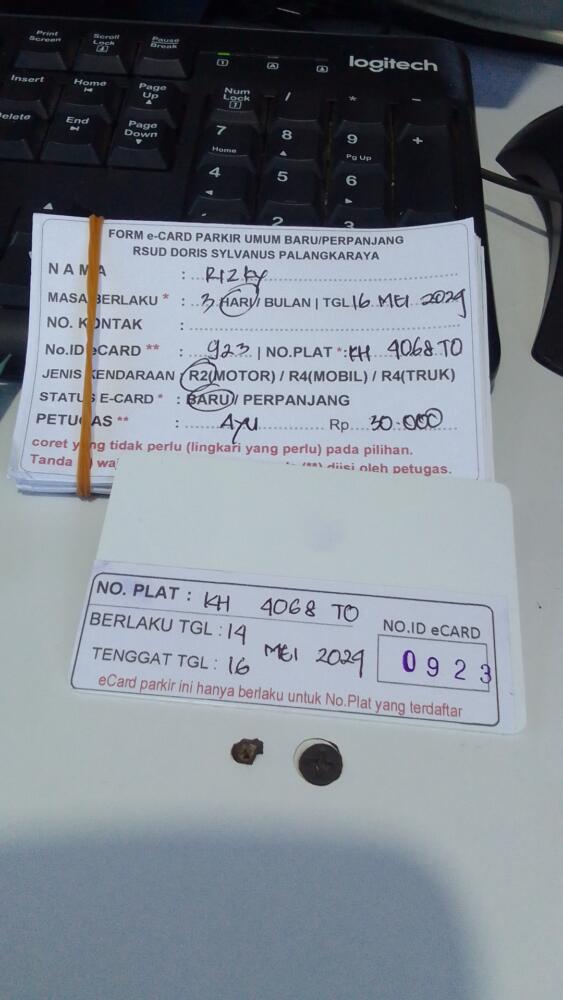 Print Screen
Scroll Lock
Pause Break
logitech
Insert
Home
Page Up
Num Lock
/
*
-
Delete
End
Page Down
7 Home
8
9 Pg Up
+
4
5
6
2
3
FORM e-CARD PARKIR UMUM BARU/PERPANJANG
RSUD DORIS SYLVANUS PALANGKARAYA
NAMA : RIZKY
MASA BERLAKU * : 3 HARI / BULAN | TGL 16 MEI 2024
NO. KONTAK :
No.ID eCARD ** : 923 | NO.PLAT *: KH 4068 TO
JENIS KENDARAAN : R2(MOTOR) / R4(MOBIL) / R4(TRUK)
STATUS E-CARD * : BARU / PERPANJANG
PETUGAS ** : AYU Rp 30.000
coret yang tidak perlu (lingkari yang perlu) pada pilihan.
Tanda (**) diisi oleh petugas.
NO. PLAT : KH 4068 TO
BERLAKU TGL : 14
TENGGAT TGL : 16 MEI 2024
NO.ID eCARD
0923
eCard parkir ini hanya berlaku untuk No.Plat yang terdaftar